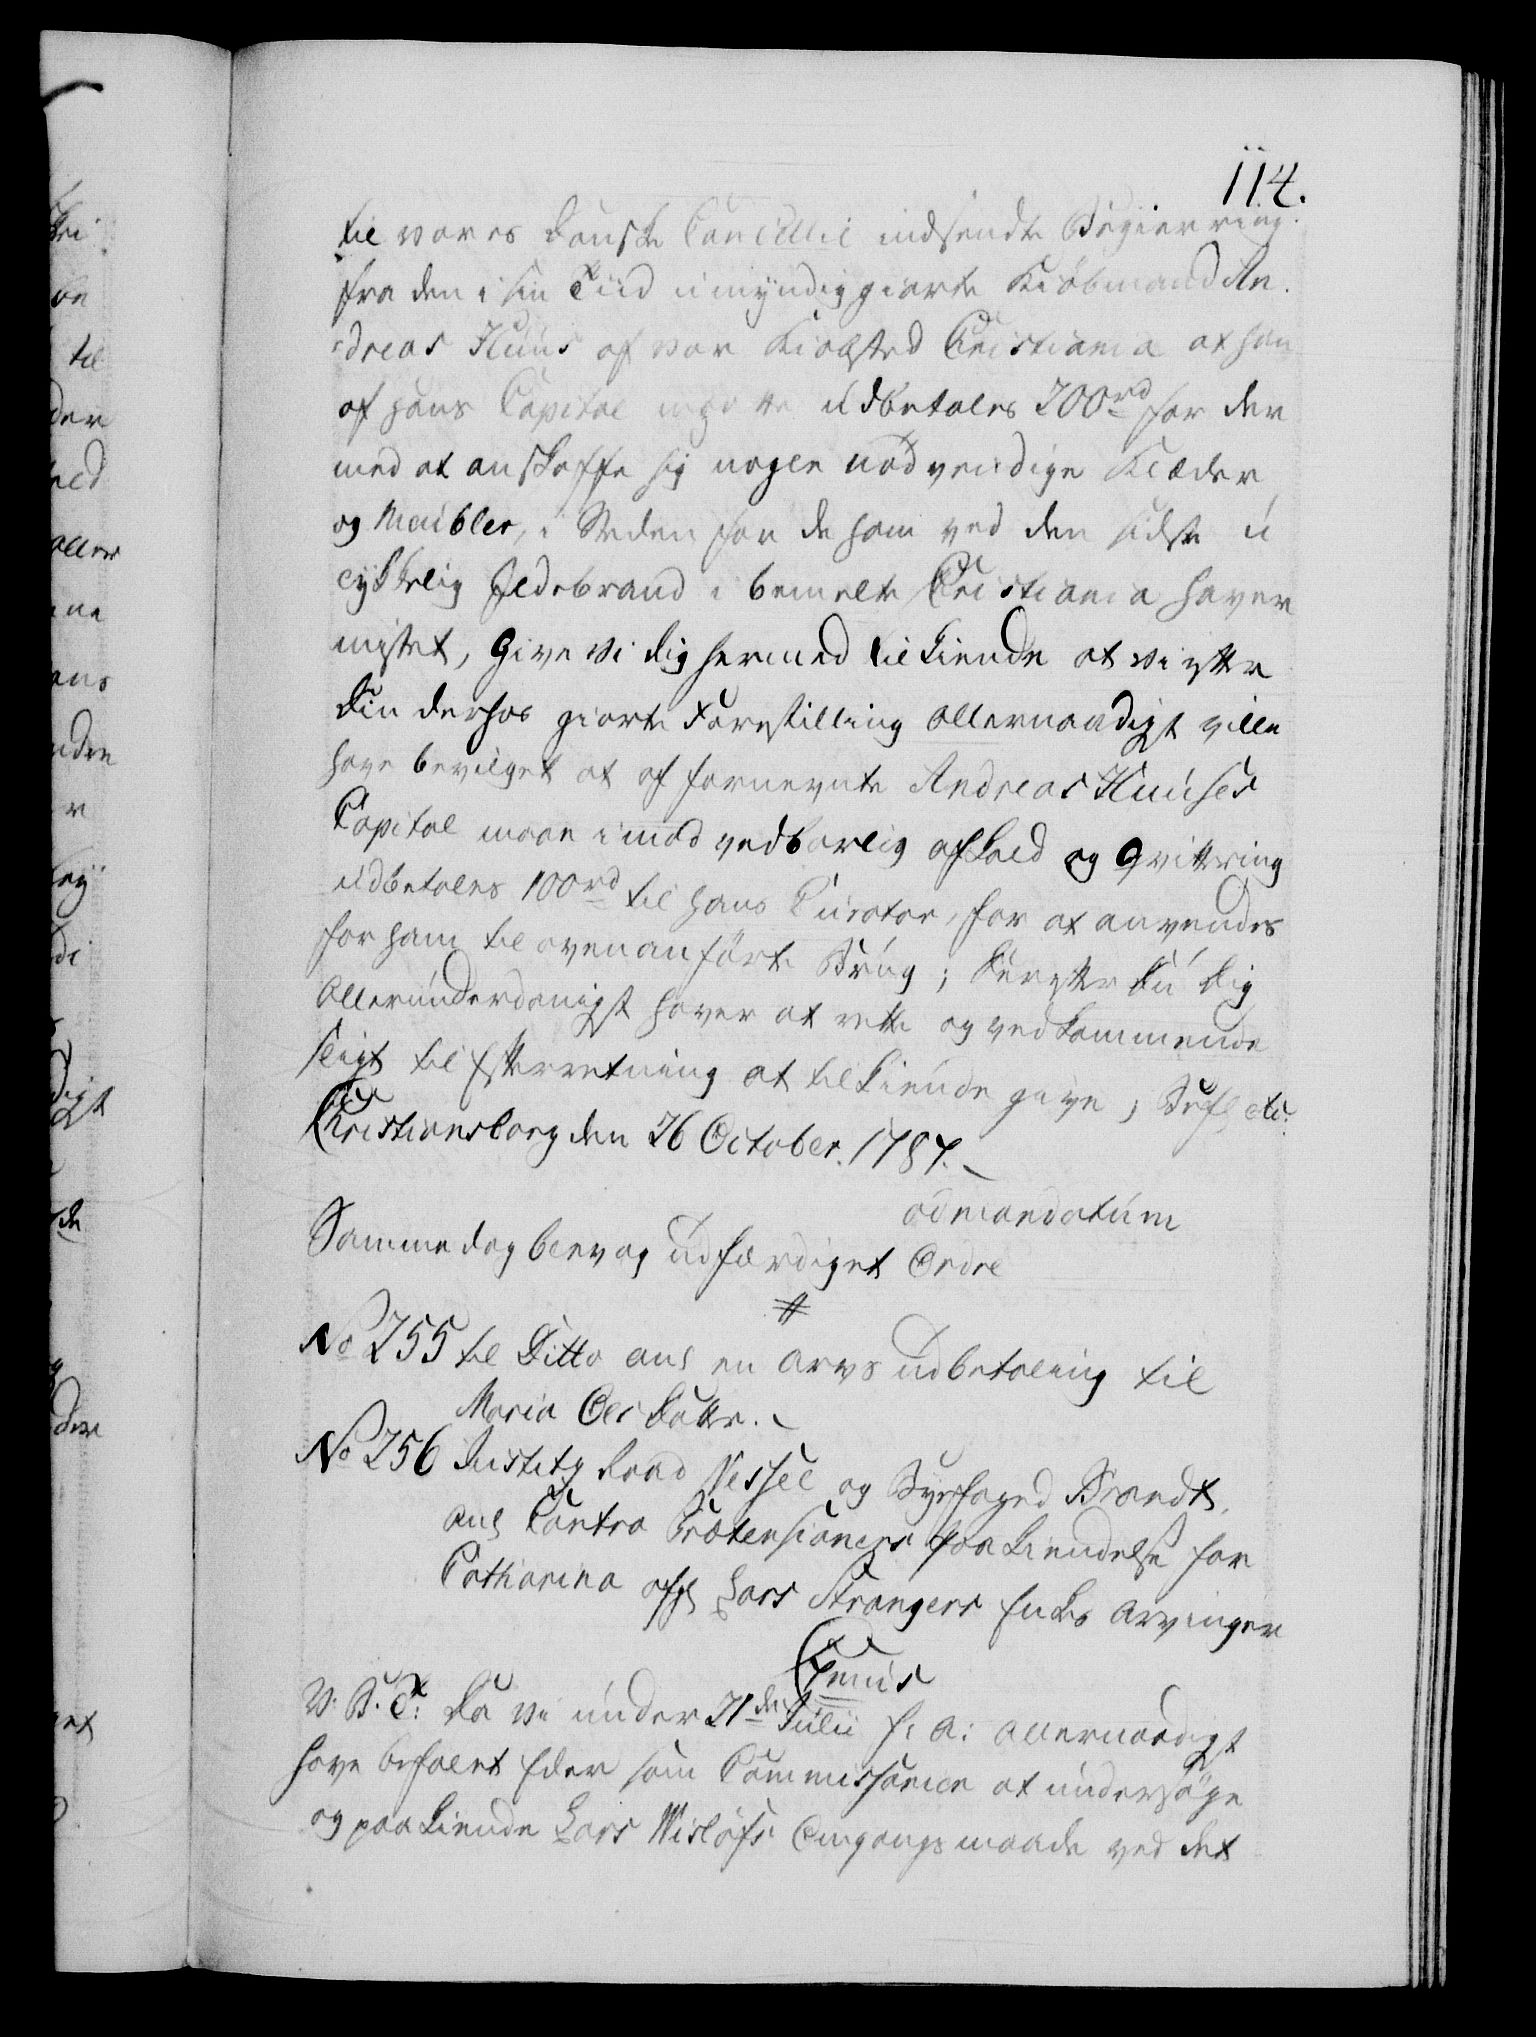 114.
til vores Danske Cancellie indsendte Begiering
fra den i sin Tiid umyndiggiorte Kiøbmand An-
dreas Huus af vor Kiøbsted Christiania at han
af hans Capital maatte udbetales 200 rd for der
med at anskaffe sig nogle nødvendige Klæder
og Meubler, i Steden for de ham ved den sidste u
lykkelig Ildebrand i bemelte Christiania haver
mistet, Give vi dig hermed tilkiende at vi efter
din derhos giorte Forestilling allernaadigst ville
have bevilget at af fornevnte Andreas Huuses
Capital maae imod vedbørlig afkald og Qvittering
udbetales 100 rd til hans Curator, for at anvendes
for ham til ovenanførte Brug; derefter du dig
allerunderdanigst haver at rette og vedkommende
sligt til Efterretning at tilkiende give; Befl etc.
Christiansborg den 26 October. 1787.
ad mandatum
Samme dag blev og udfærdiget Ordre
#
No 255 til Ditto anl en arvs udbetaling til
Maria Ols datter.
No 256 Justitz Raad Wessel og Byefoged Brandt,
anl Contra Prætensioners paakiendelse for
Catharina afgl Lars Strangers Enkes arvinger
V. B. T: Da vi under 21de Julii h: a: allernaadigst
have befalet Eder som Commissarier at undersøge
og paakiende Lars Wisløfs Omgangsmaade ved det